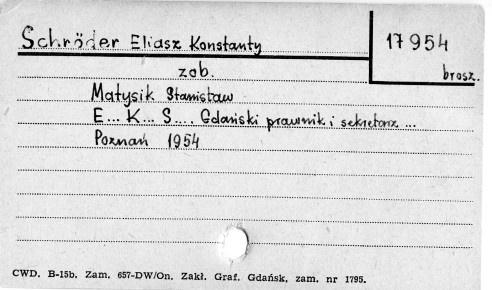 Schröder Eliasz Konstanty
17954
brosz.
zob.
Matysik Stanisław
E... K... S.... Gdański prawnik i sekretarz ...
Poznań 1954
CWD. B-15b. Zam. 657-DW/On. Zakł. Graf. Gdańsk, zam. nr 1795.